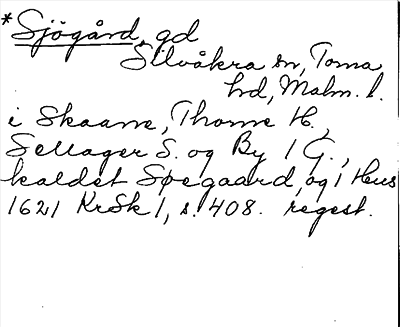 *Sjögård, gd
Silvåkra sn, Torna
hd, Malm. l.
i Skaane, Thorne H.,
Sellager S. og By 1 G.,
kaldet Søegaard, og 1 Hus
1621 KrSk 1, s. 408. regest.